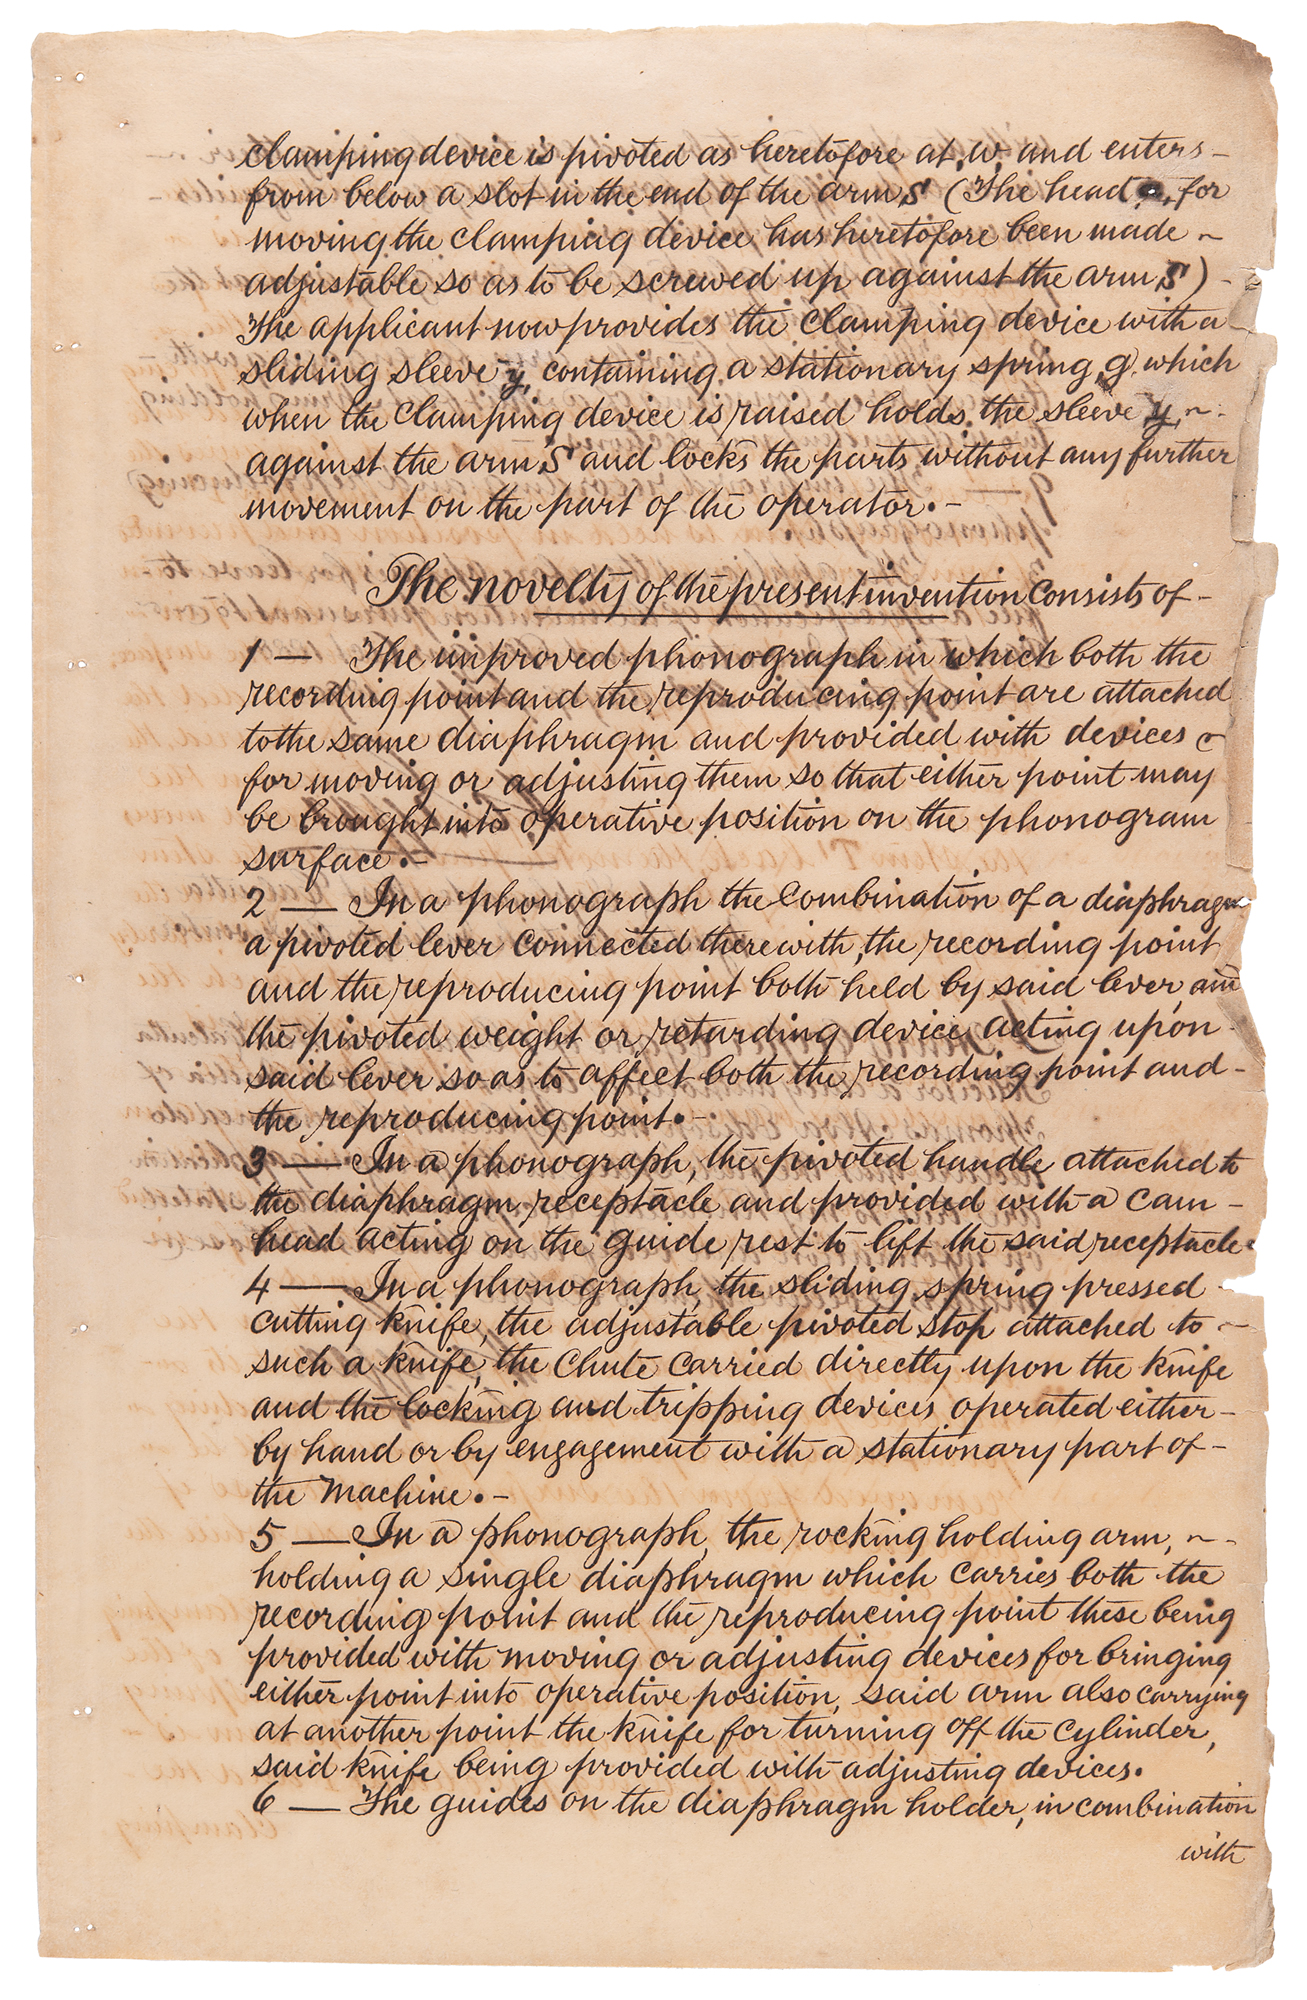 clamping device is pivoted as heretofore at, w, and enters –
from below a slot in the end of the arm S (The head , for
moving the clamping device has heretofore been made ~
adjustable so as to be screwed up against the arm S) –
The applicant now provides the clamping device with a
sliding sleeve y, containing a stationary spring, g, which
when the clamping device is raised holds the sleeve y, ~
against the arm S and locks the parts without any further
movement on the part of the operator. –
The novelty of the present invention consists of –
1 — The improved phonograph in which both the
recording point and the reproducing point are attached
to the same diaphragm and provided with devices ~
for moving or adjusting them so that either point may
be brought into operative position on the phonogram
surface. –
2 — In a phonograph the combination of a diaphragm
a pivoted lever connected therewith, the recording point
and the reproducing point both held by said lever, and
the pivoted weight or retarding device, acting upon –
said lever so as to affect both the recording point and –
the reproducing point. –
3 — In a phonograph, the pivoted handle attached to
the diaphragm receptacle and provided with a cam –
head acting on the guide rest to lift the said receptacle.
4 — In a phonograph, the sliding spring pressed –
cutting knife, the adjustable pivoted stop attached to ~
such a knife, the chute carried directly upon the knife
and the locking and tripping devices operated either –
by hand or by engagement with a stationary part of –
the machine. –
5 — In a phonograph, the rocking holding arm, ~ -
holding a single diaphragm which carries both the
recording point and the reproducing point these being
provided with moving or adjusting devices for bringing
either point into operative position, said arm also carrying
at another point the knife for turning off the cylinder,
said knife being provided with adjusting devices.
6 — The guides on the diaphragm holder, in combination
with